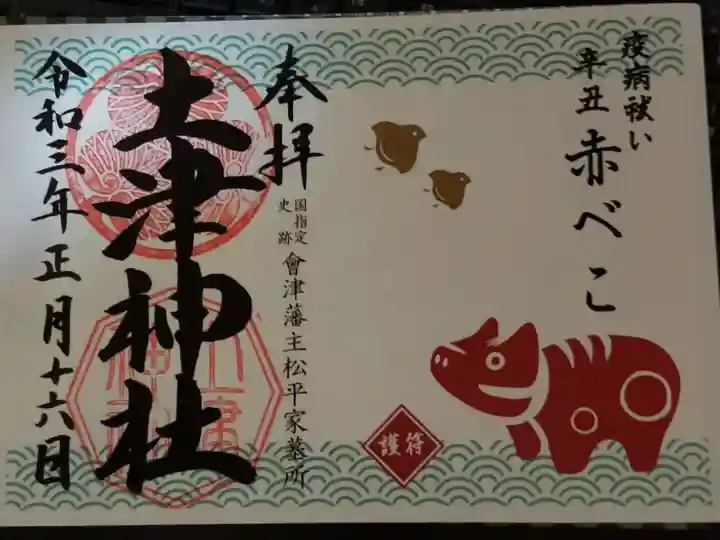 疫病祓い
辛丑 赤べこ
護符
奉拝
国指定
史跡
會津藩主松平家墓所
土津神社
令和三年正月十六日